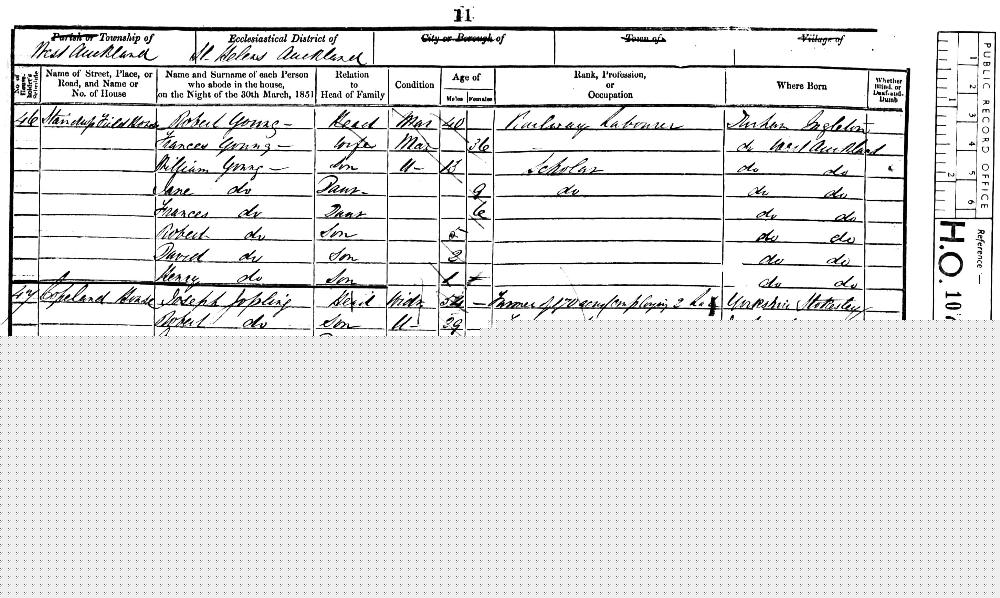 11
Parish or Township of
West Auckland
Ecclesiastical District of
St Helens Auckland
City or Borough of
Town of
Village of
No. of House-holder's Schedule
Name of Street, Place, or Road, and Name or No. of House
Name and Surname of each Person who abode in the house, on the Night of the 30th March, 1851
Relation to Head of Family
Condition
Age of
Males Females
Rank, Profession, or Occupation
Where Born
Whether Blind, or Deaf-and-Dumb
46 Robert Young Head Mar 40 Railway Labourer Durham Ingleton
Frances Young Wife Mar 36 do West Auckland
William Young Son U 13 Scholar do do
Jane do Daur 9 do do do
Frances do Daur 6 do do
Robert do Son do do
David do Son do do
Henry do Son 1 do do
47 Copeland House Joseph Jopling Head Widr Farmer of 170 acres employing 2 Yorkshire Stokesley
Robert do Son U 29
PUBLIC RECORD OFFICE
1 2 3 4 5 6
1 2
Reference
H.O. 107